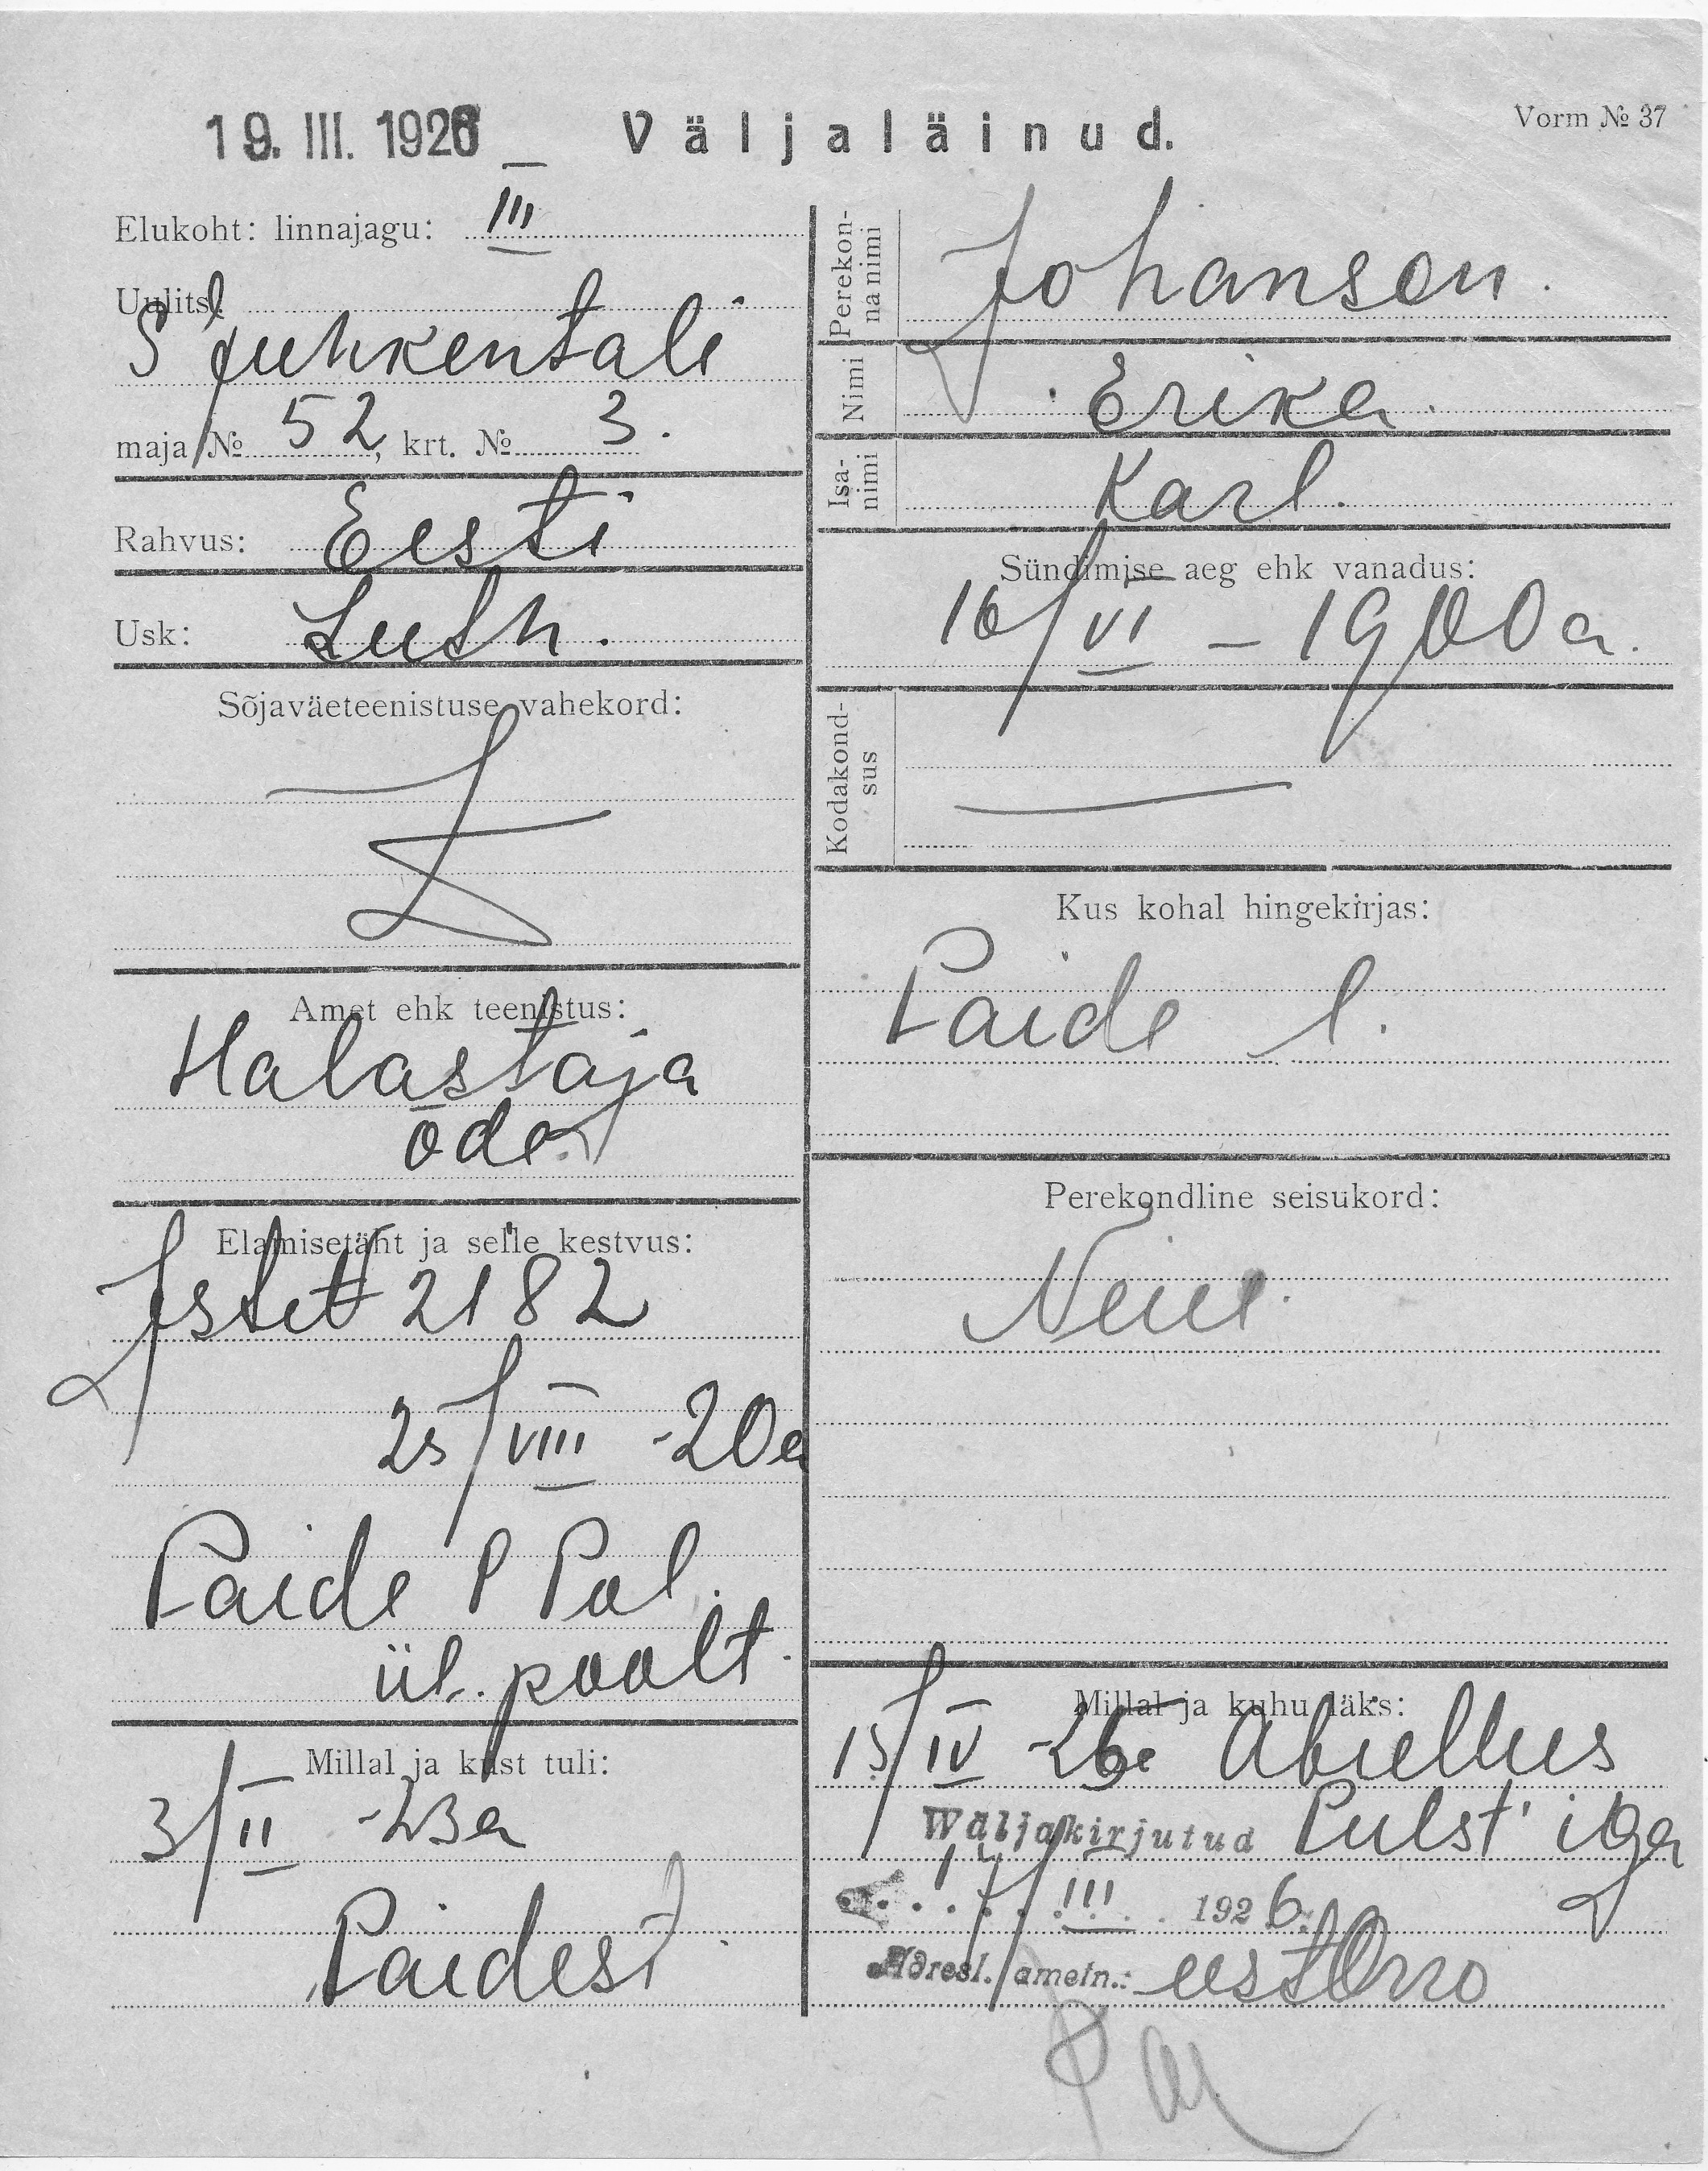 19. III. 1926
Väljaläinud.
Vorm № 37
Elukoht: linnajagu: III
Uulits:
S Juhkentali
maja № 52, krt. № 3.
Rahvus: Eesti
Usk: Luth.
Sõjaväeteenistuse vahekord:
Amet ehk teenistus:
Halastaja
õde
Elamisetäht ja selle kestvus:
2182
25/VIII -20a
Paide l Pol.
ül. poolt.
Millal ja kust tuli:
3/II -23a
Paidest
Perekon-
na nimi
Johanson.
Nimi
Erika.
Isa-
nimi
Karl.
Sündimise aeg ehk vanadus:
16/VI - 1900 a.
Kodakond-
sus
Kus kohal hingekirjas:
Paide l.
Perekondline seisukord:
Neiu.
Millal ja kuhu läks:
15/IV -26 Abiellus
Wäljakirjutud Pulst'iga
III 1926.
Adresl. ametn.: